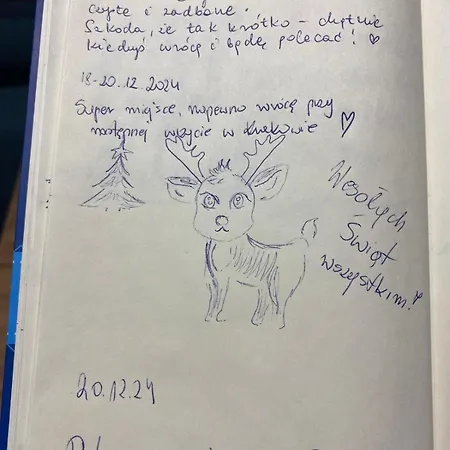 czyste i zadbane.
Szkoda, że tak krótko - chętnie
kiedyś wrócę i będę polecać! ♡
18-20.12.2024
Super miejsce, napewno wrócę przy
następnej wizycie w Krakowie ♡
Wesołych
Świąt
wszystkim!
20.12.24